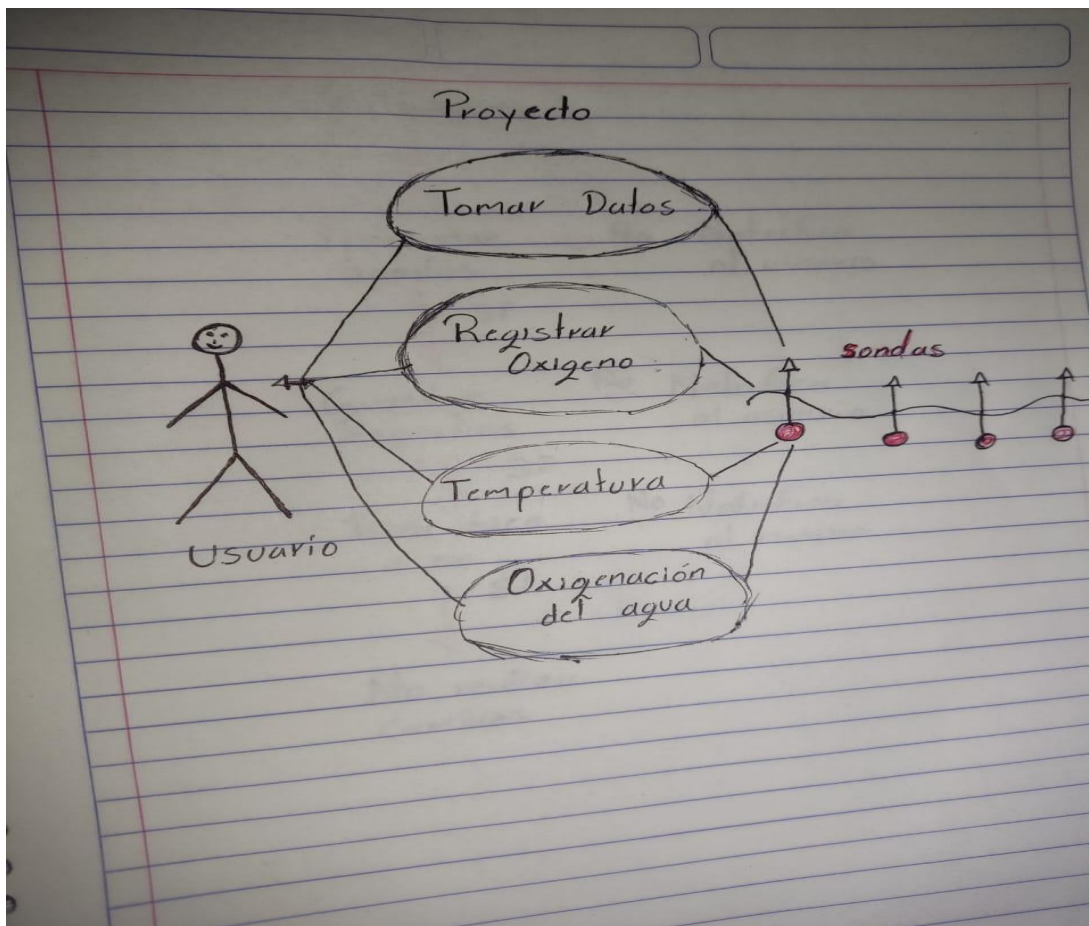 Proyecto
Tomar Datos
Registrar
Oxigeno
sondas
Temperatura
Usuario
Oxigenación
del agua